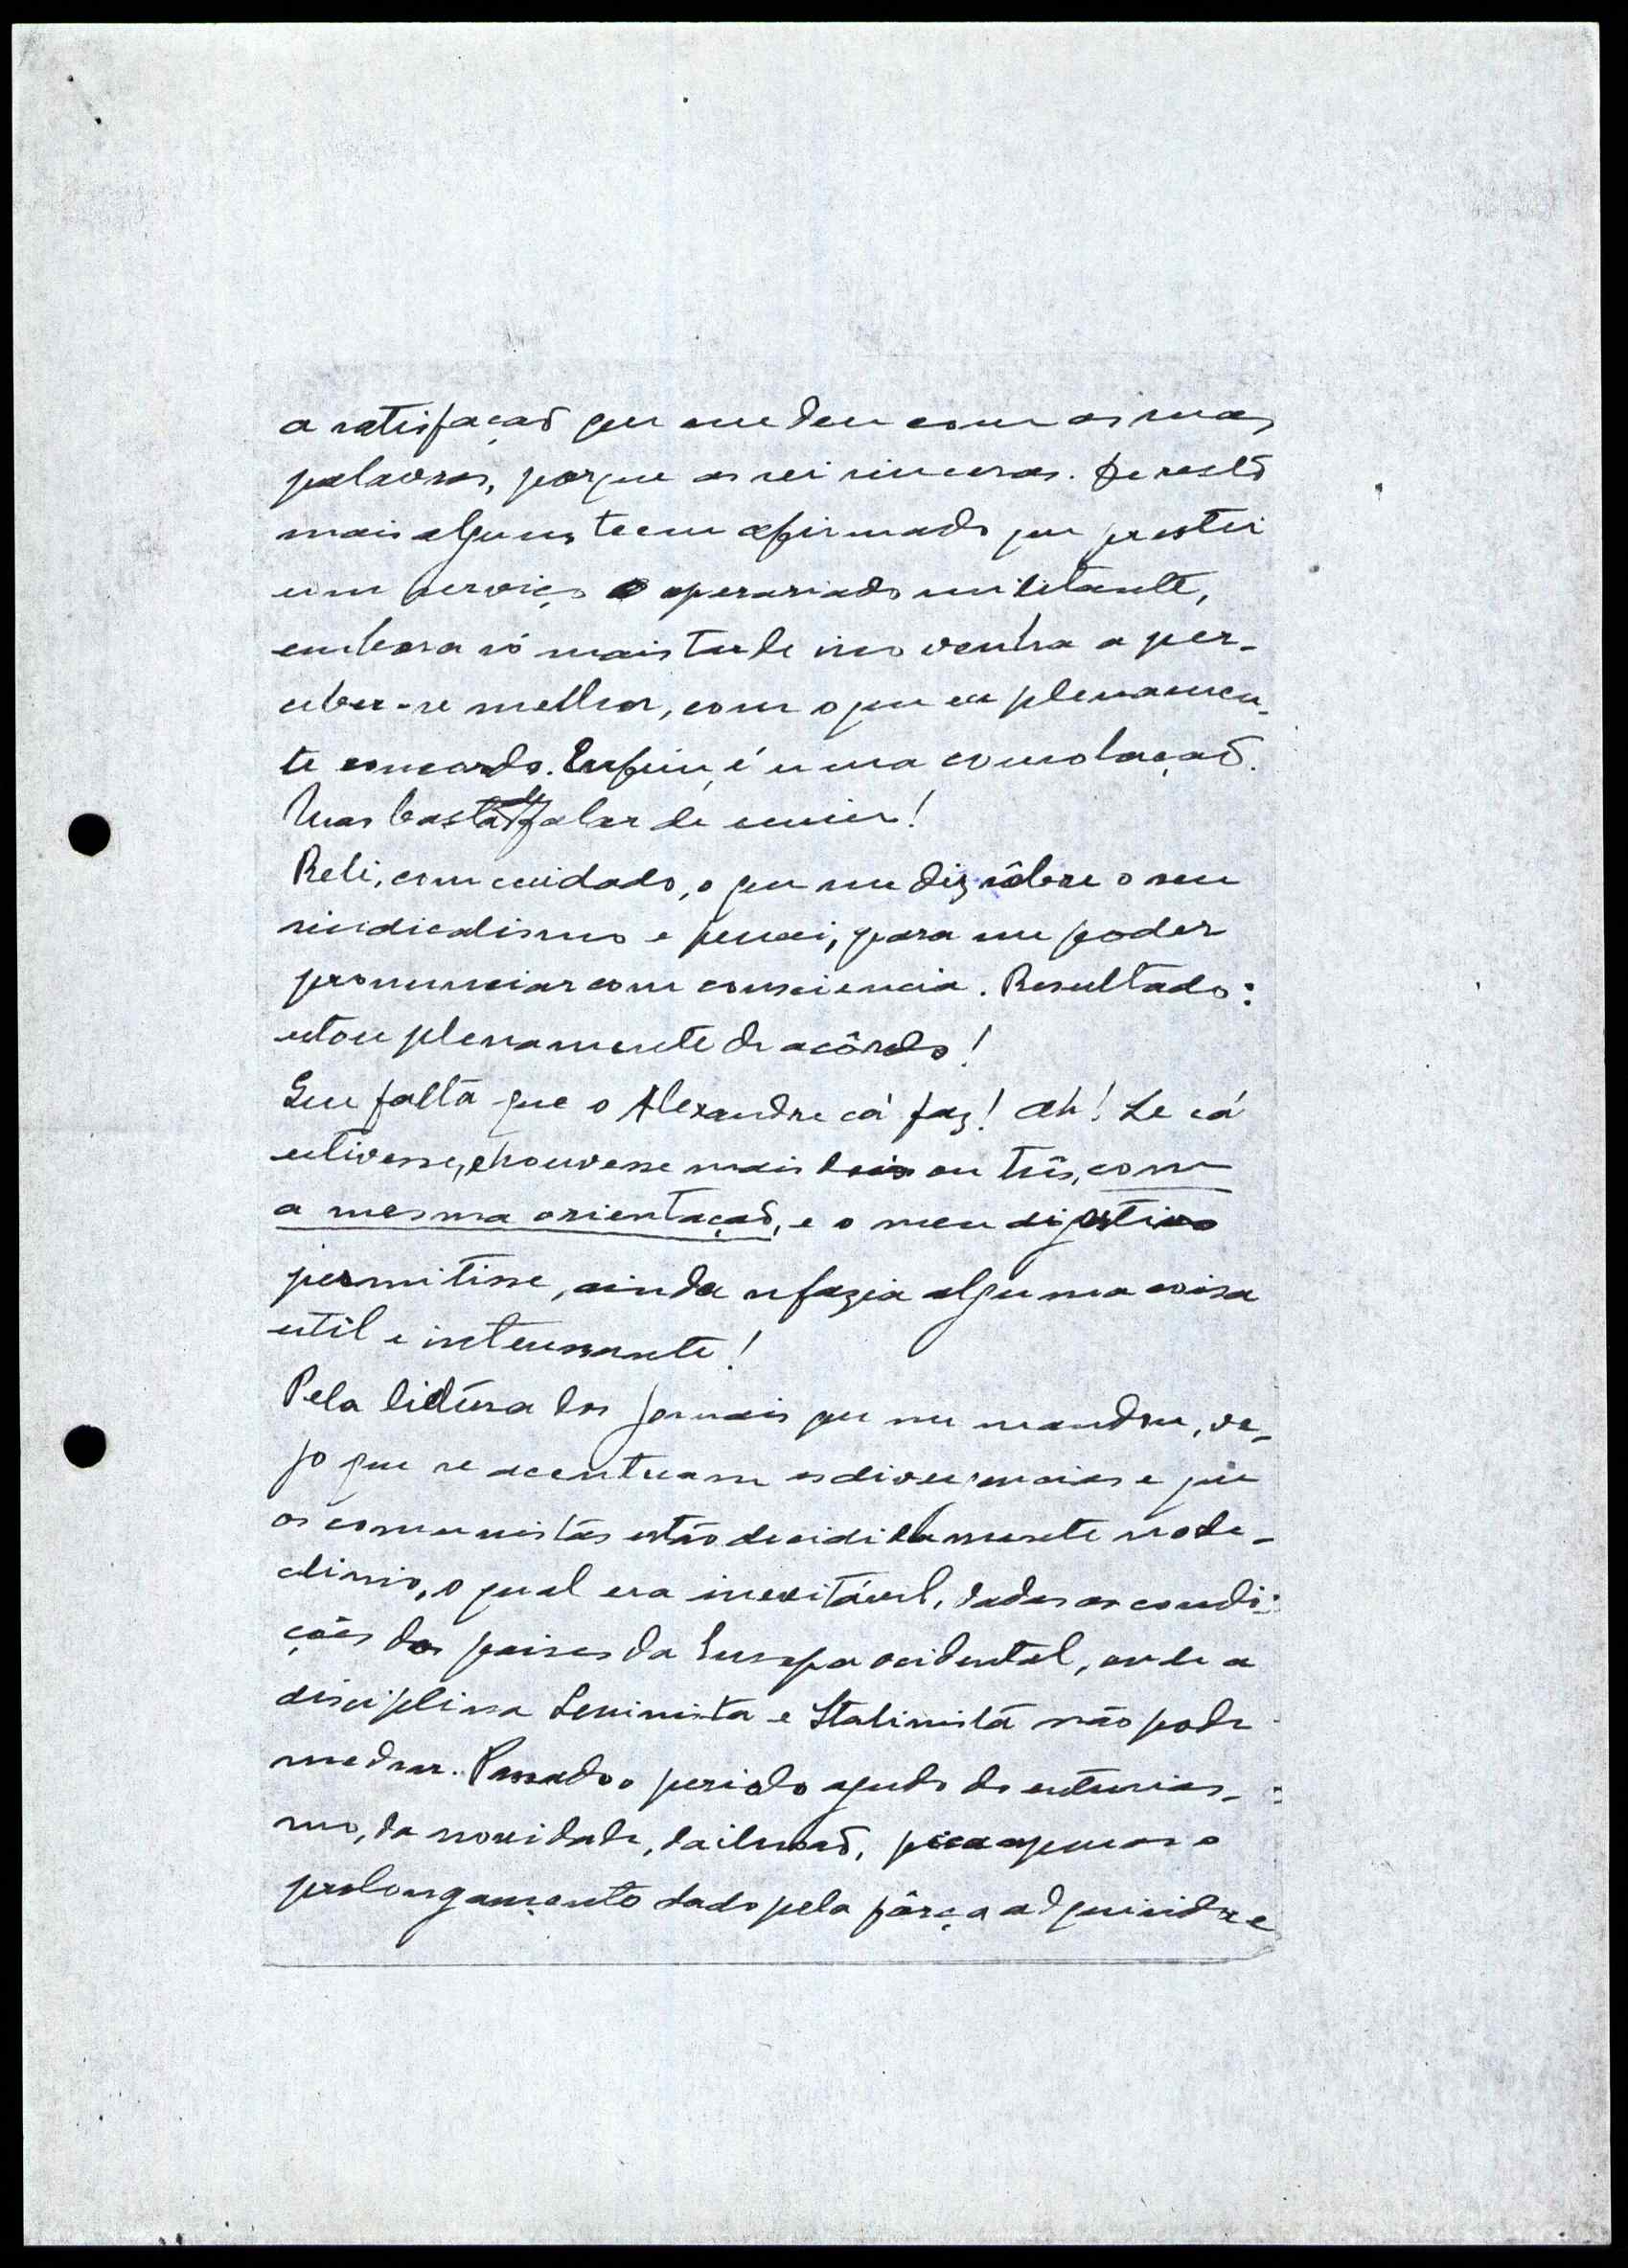 a satisfação que me deu com as suas
palavras, porque as sei sinceras. De resto
mais alguns teem afirmado que prestei
um serviço ao operariado militante,
embora só mais tarde isso venha a per-
ceber-se melhor, com o que eu plenamen-
te concordo. Enfim, é uma consolação.
Mas basta de falar de mim!
Reli, com cuidado, o que me diz sôbre o seu
sindicalismo e pensei, para me poder
pronunciar com consciencia. Resultado:
estou plenamente de acôrdo!
Que falta que o Alexandre cá faz! Ah! Se cá
estivesse, e houvesse mais dois ou três, com
a mesma orientação, e o meu digestivo
permitisse, ainda se fazia alguma coisa
util e interessante!
Pela leitura dos jornais que me mandou, ve-
jo que se acentuam as divergencias e que
os comunistas estão decididamente no de-
clinio, o qual era inevitável, dadas as condi-
ções dos paises da Europa ocidental, onde a
disciplina Leninista e Stalinista não pode
medrar. Passado o periodo agudo do entusias-
mo, da novidade, da ilusão, fica apenas o
prolongamento dado pela fôrça adquirida e